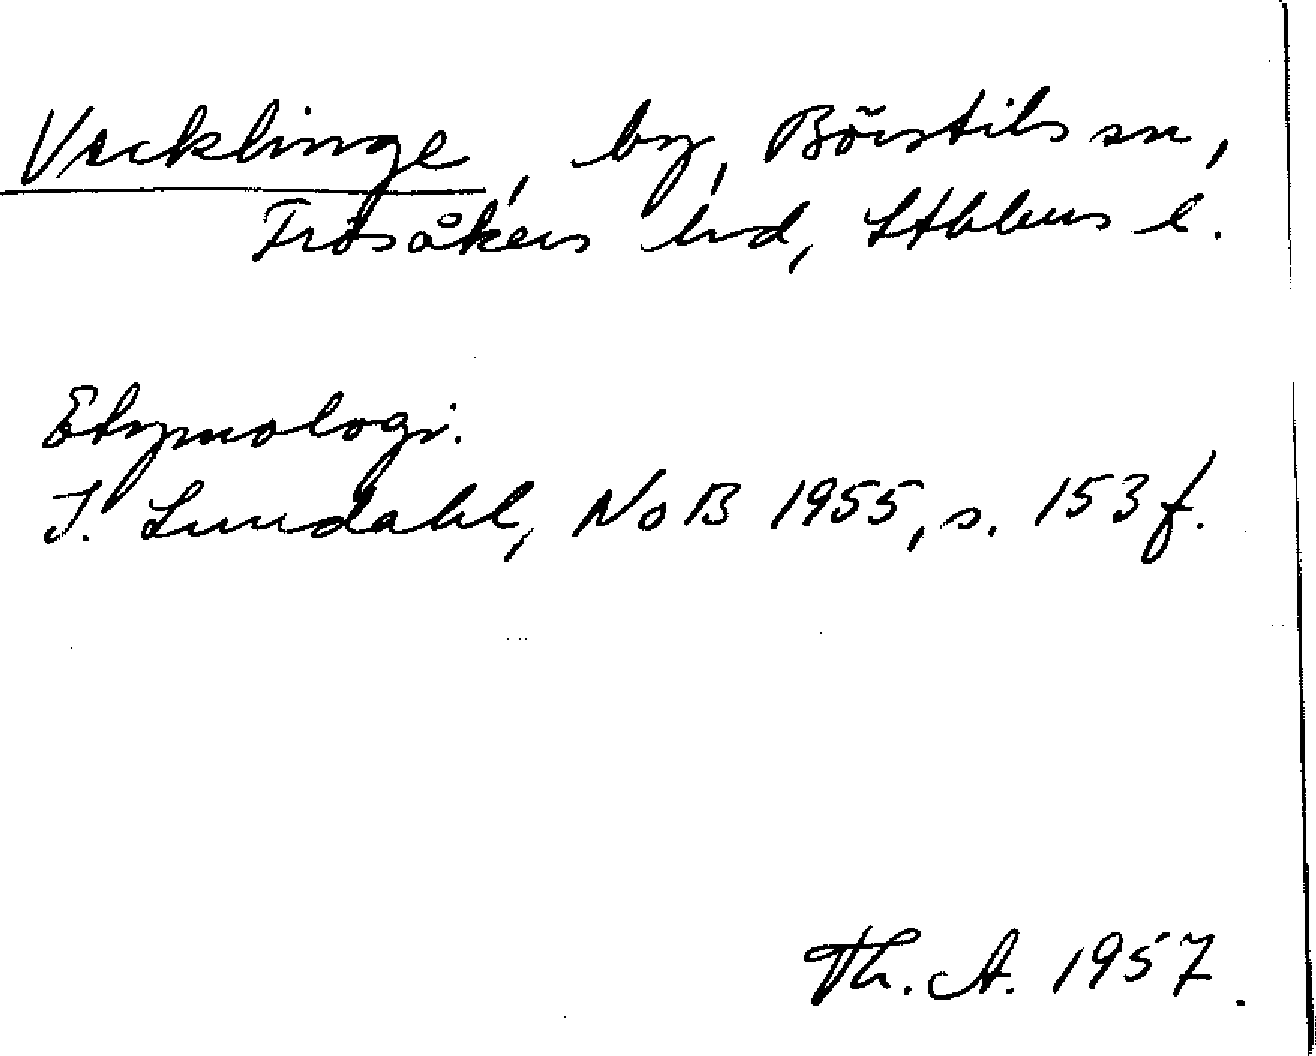 Vreklinge, by, Börstils sn,
Frösåkers hd, Sthlms l.
Etymologi.
I. Lundahl, NoB 1955, s. 153 f.
Th. A. 1957.